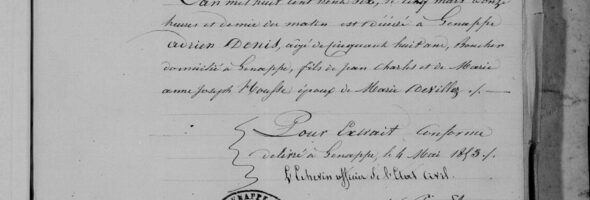 L'an mil huit cent trente six, le cinq mars à onze
heures et demie du matin est décédé à Genappe
Adrien Denis, agé de cinquant huit ans, boucher
domicilié à Genappe, fils de Jean Charles et de Marie
anne Joseph époux de Marie Devillez ./.
Pour Extrait Conforme
delivré à Genappe, le 4 Mai 1853 ./.
L'Echevin officier de l'Etat Civil.